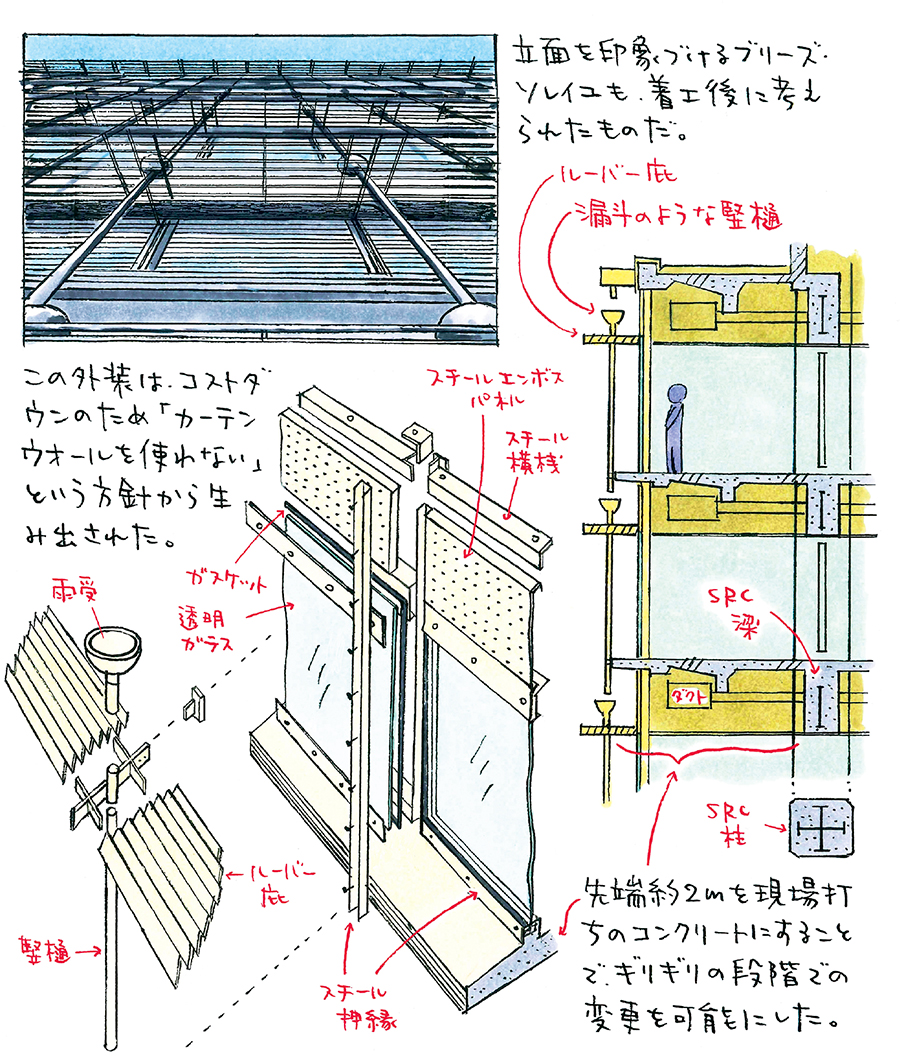 立面を印象づけるブリーズ・
ソレイユも、着工後に考え
られたものだ。
ルーバー庇
漏斗のような竪樋
この外装は、コストダ
ウンのため「カーテン
ウオールを使わない」
という方針から生
み出された。
スチールエンボス
パネル
スチール
横桟
ガスケット
透明
ガラス
雨受
SRC
梁
ダクト
SRC
柱
ルーバー
庇
竪樋
スチール
押縁
先端約2mを現場打
ちのコンクリートにすること
で、ギリギリの段階での
変更を可能にした。